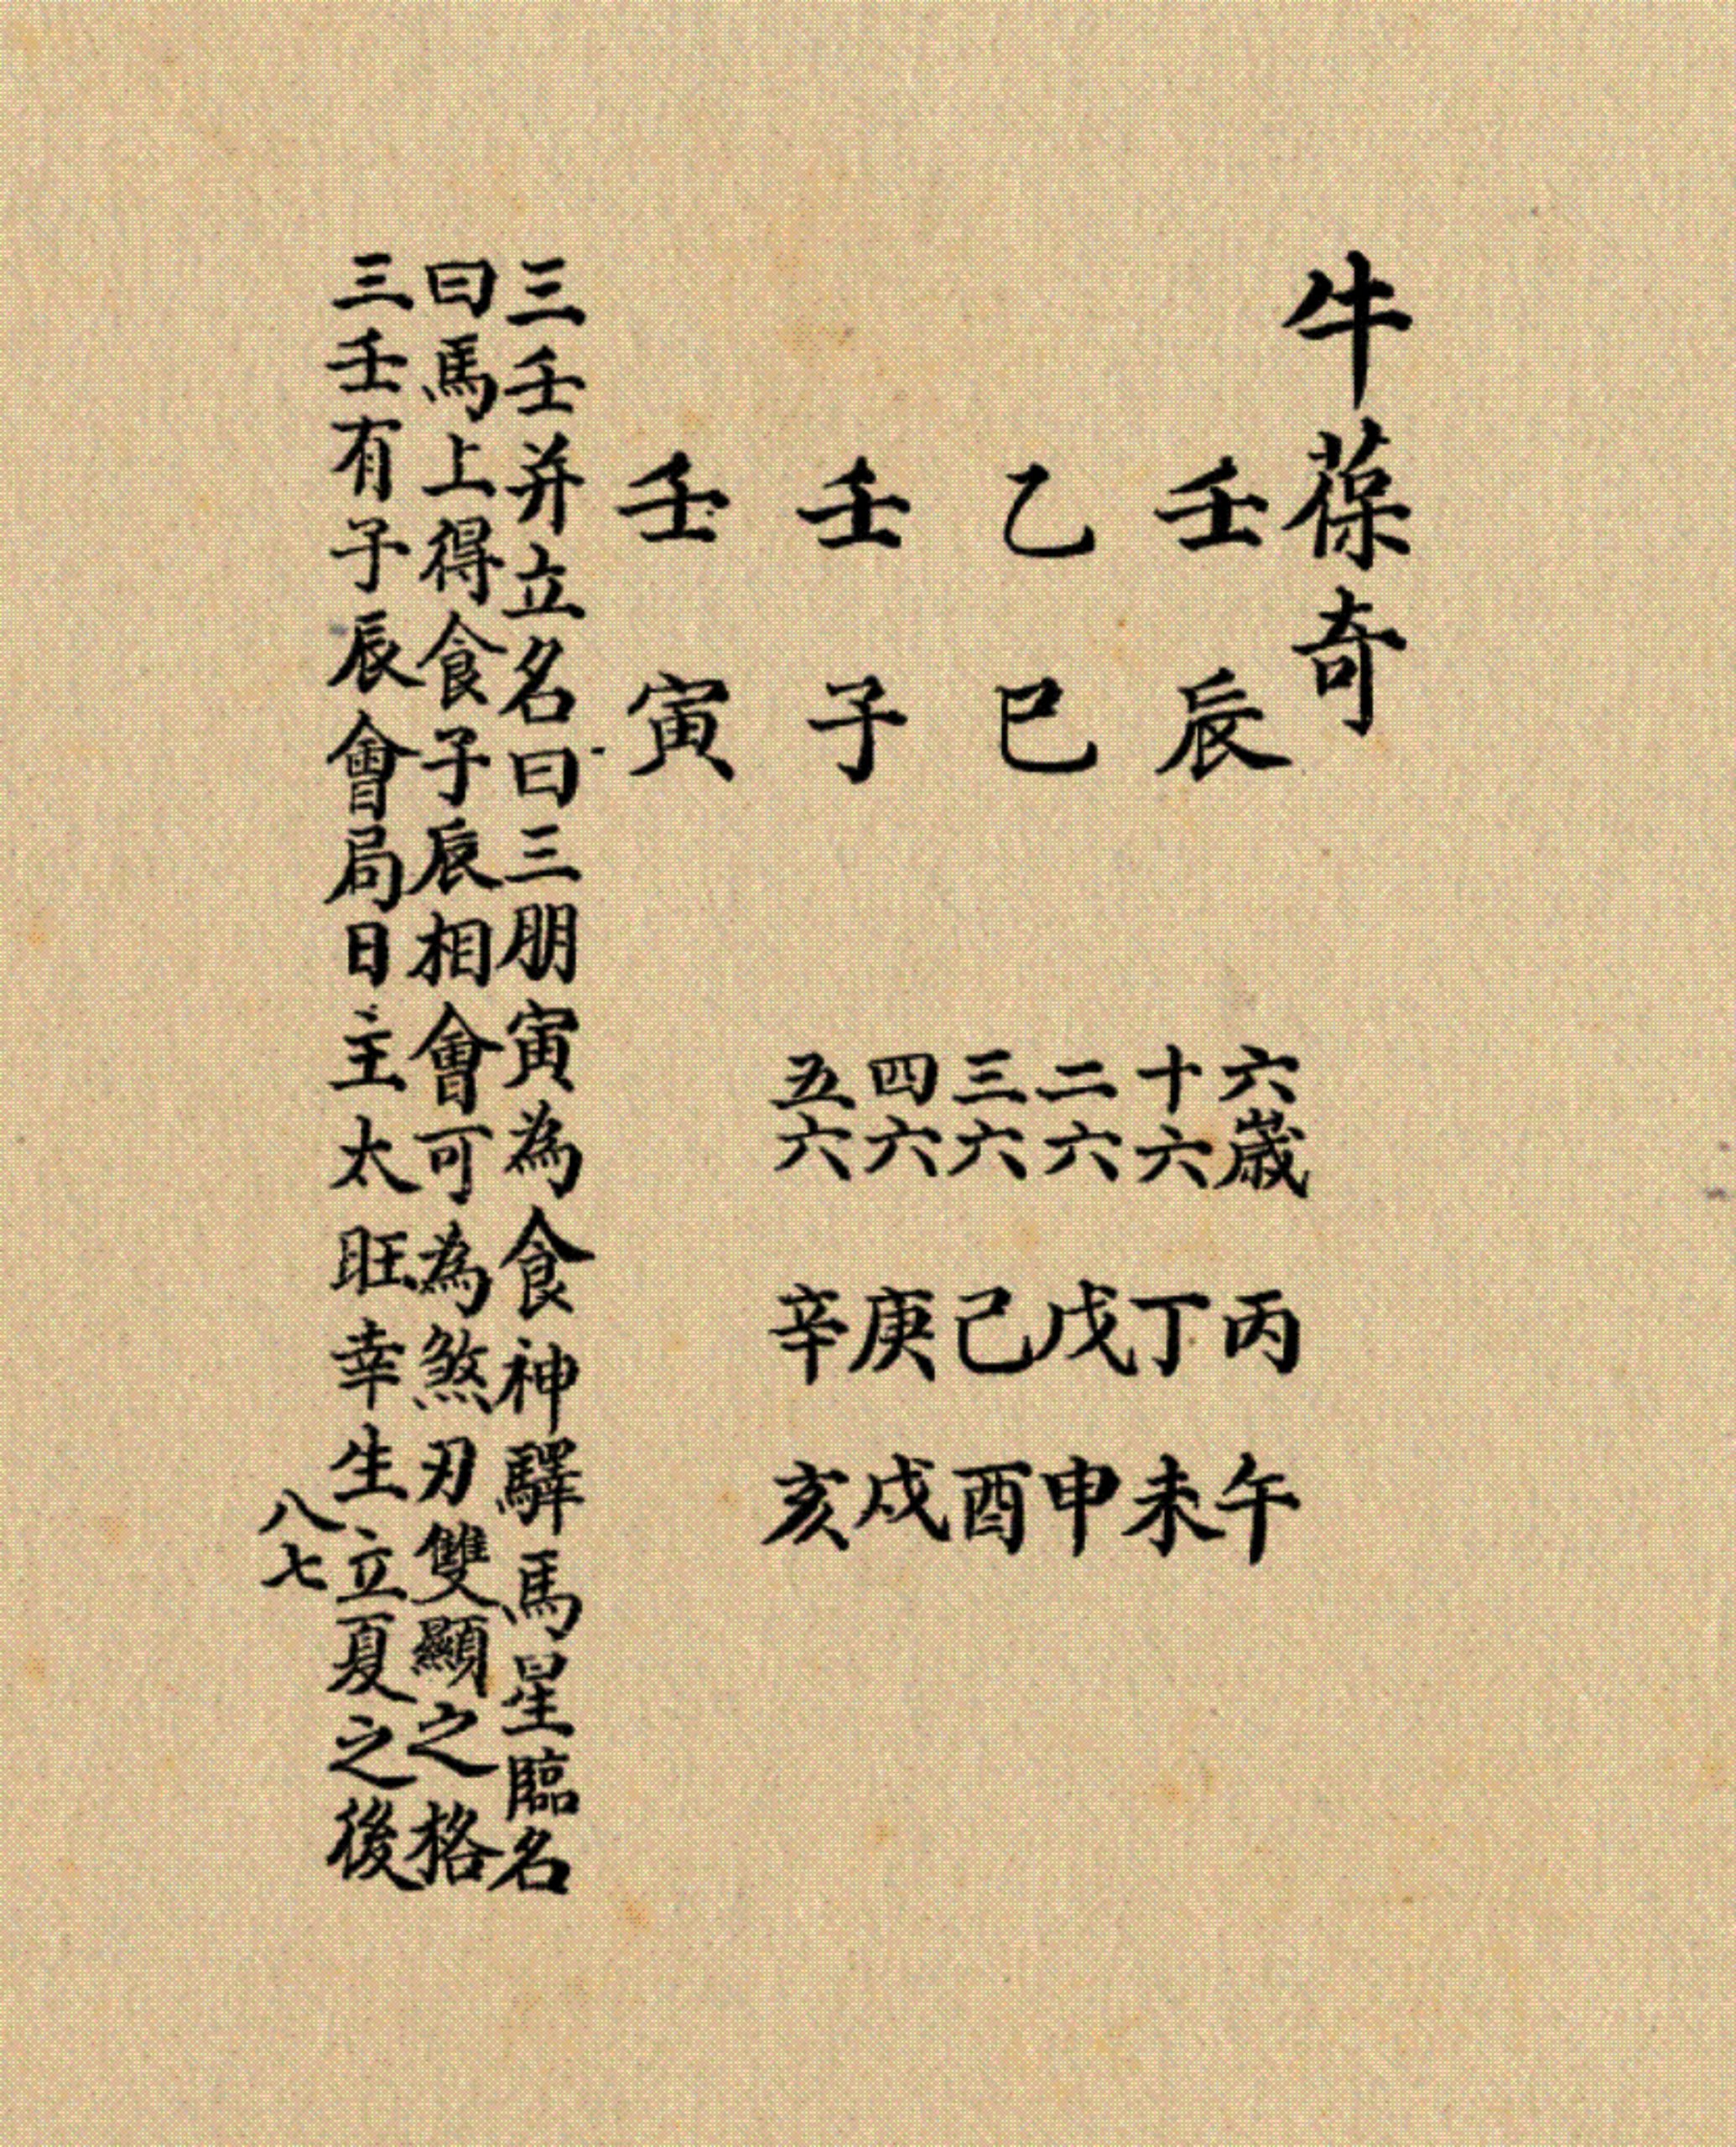 牛葆奇
壬辰
乙巳
壬子
壬寅
六歲 丙午
十六 丁未
二六 戊申
三六 己酉
四六 庚戌
五六 辛亥
三壬并立名曰三朋寅為食神驛馬星臨名
曰馬上得食子辰相會可為煞刃雙顯之格
三壬有子辰會局日主太旺幸生立夏之後
八七